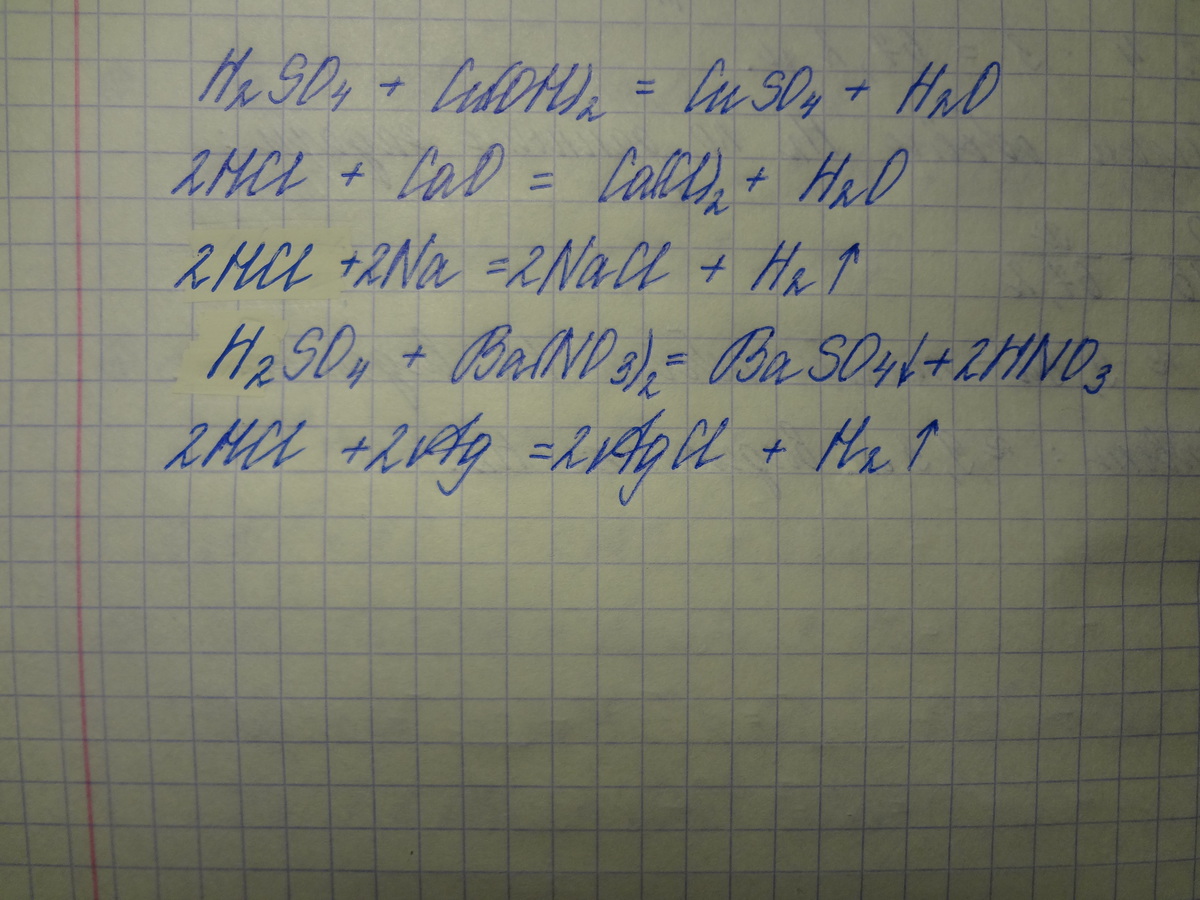 H₂SO₄ + Cu(OH)₂ = CuSO₄ + H₂O
2HCl + CaO = Ca(Cl)₂ + H₂O
2HCl +2Na =2NaCl + H₂↑
H₂SO₄ + Ba(NO₃)₂= BaSO₄↓+2HNO₃
2HCl +2Ag =2AgCl + H₂↑